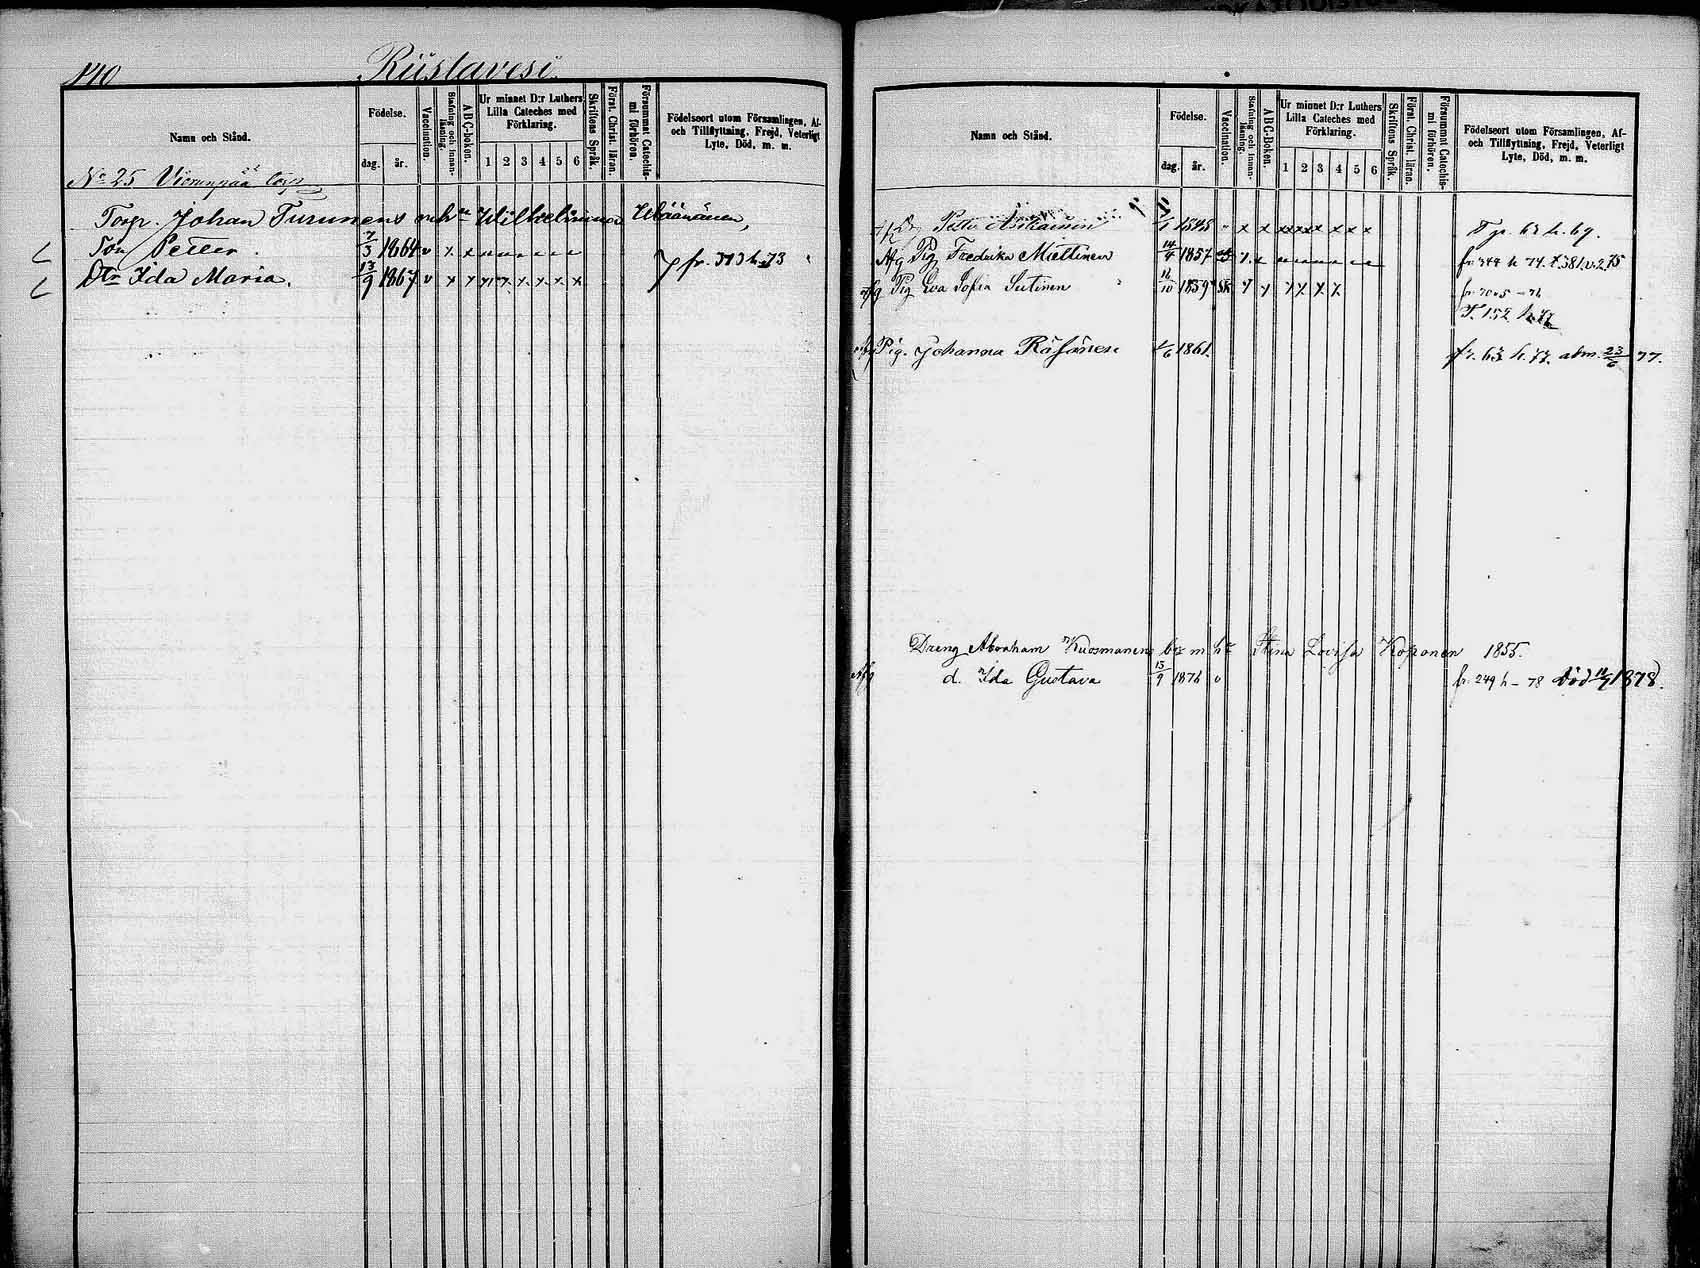 140 Riistavesi.
Namn och Stånd.
Födelse.
dag. år.
Vaccination.
Stafning och Innanläsning.
ABC-Boken.
Ur minnet D:r Luthers Lilla Cateches med Förklaring.
1 2 3 4 5 6
Skriftens Språk.
Först. Christ. läran.
Försummat Catechismi förhören.
Födelseort utom Församlingen, Af- och Tillflyttning, Frejd, Veterligt Lyte, Död, m. m.
No 25 torp
Torp. Johan Turunens och hu Wilhelmina Väänänen,
Son Petter. 7/3 1864 v x x
fr. 313 h. 73
Dtr Ida Maria. 13/9 1867 v x x x x x x x x
Namn och Stånd.
Födelse.
dag. år.
Vaccination.
Stafning och Innanläsning.
ABC-Boken.
Ur minnet D:r Luthers Lilla Cateches med Förklaring.
1 2 3 4 5 6
Skriftens Språk.
Först. Christ. läran.
Försummat Catechismi förhören.
Födelseort utom Församlingen, Af- och Tillflyttning, Frejd, Veterligt Lyte, Död, m. m.
Petter 1848 x x x x x x x x h. 69.
Afg Pig Fredrika Miettinen 14/4 1857 x x fr. 344 h 74. T. 381. v. 2. 75
afg Pig Eva Sofia 16/10 1859 x x x x x x
T. 152 h. 77
afg Pig. Johanna Räsänen 1/6 1861. fr. 63 h. 77. abm. 23/6 77.
Dreng Abraham Kuosmanens m hu Stina Lovisa Koponen 1855.
Afg d. Ida Gustava 15/9 1876 v fr. 249 h - 78 Död 1878.